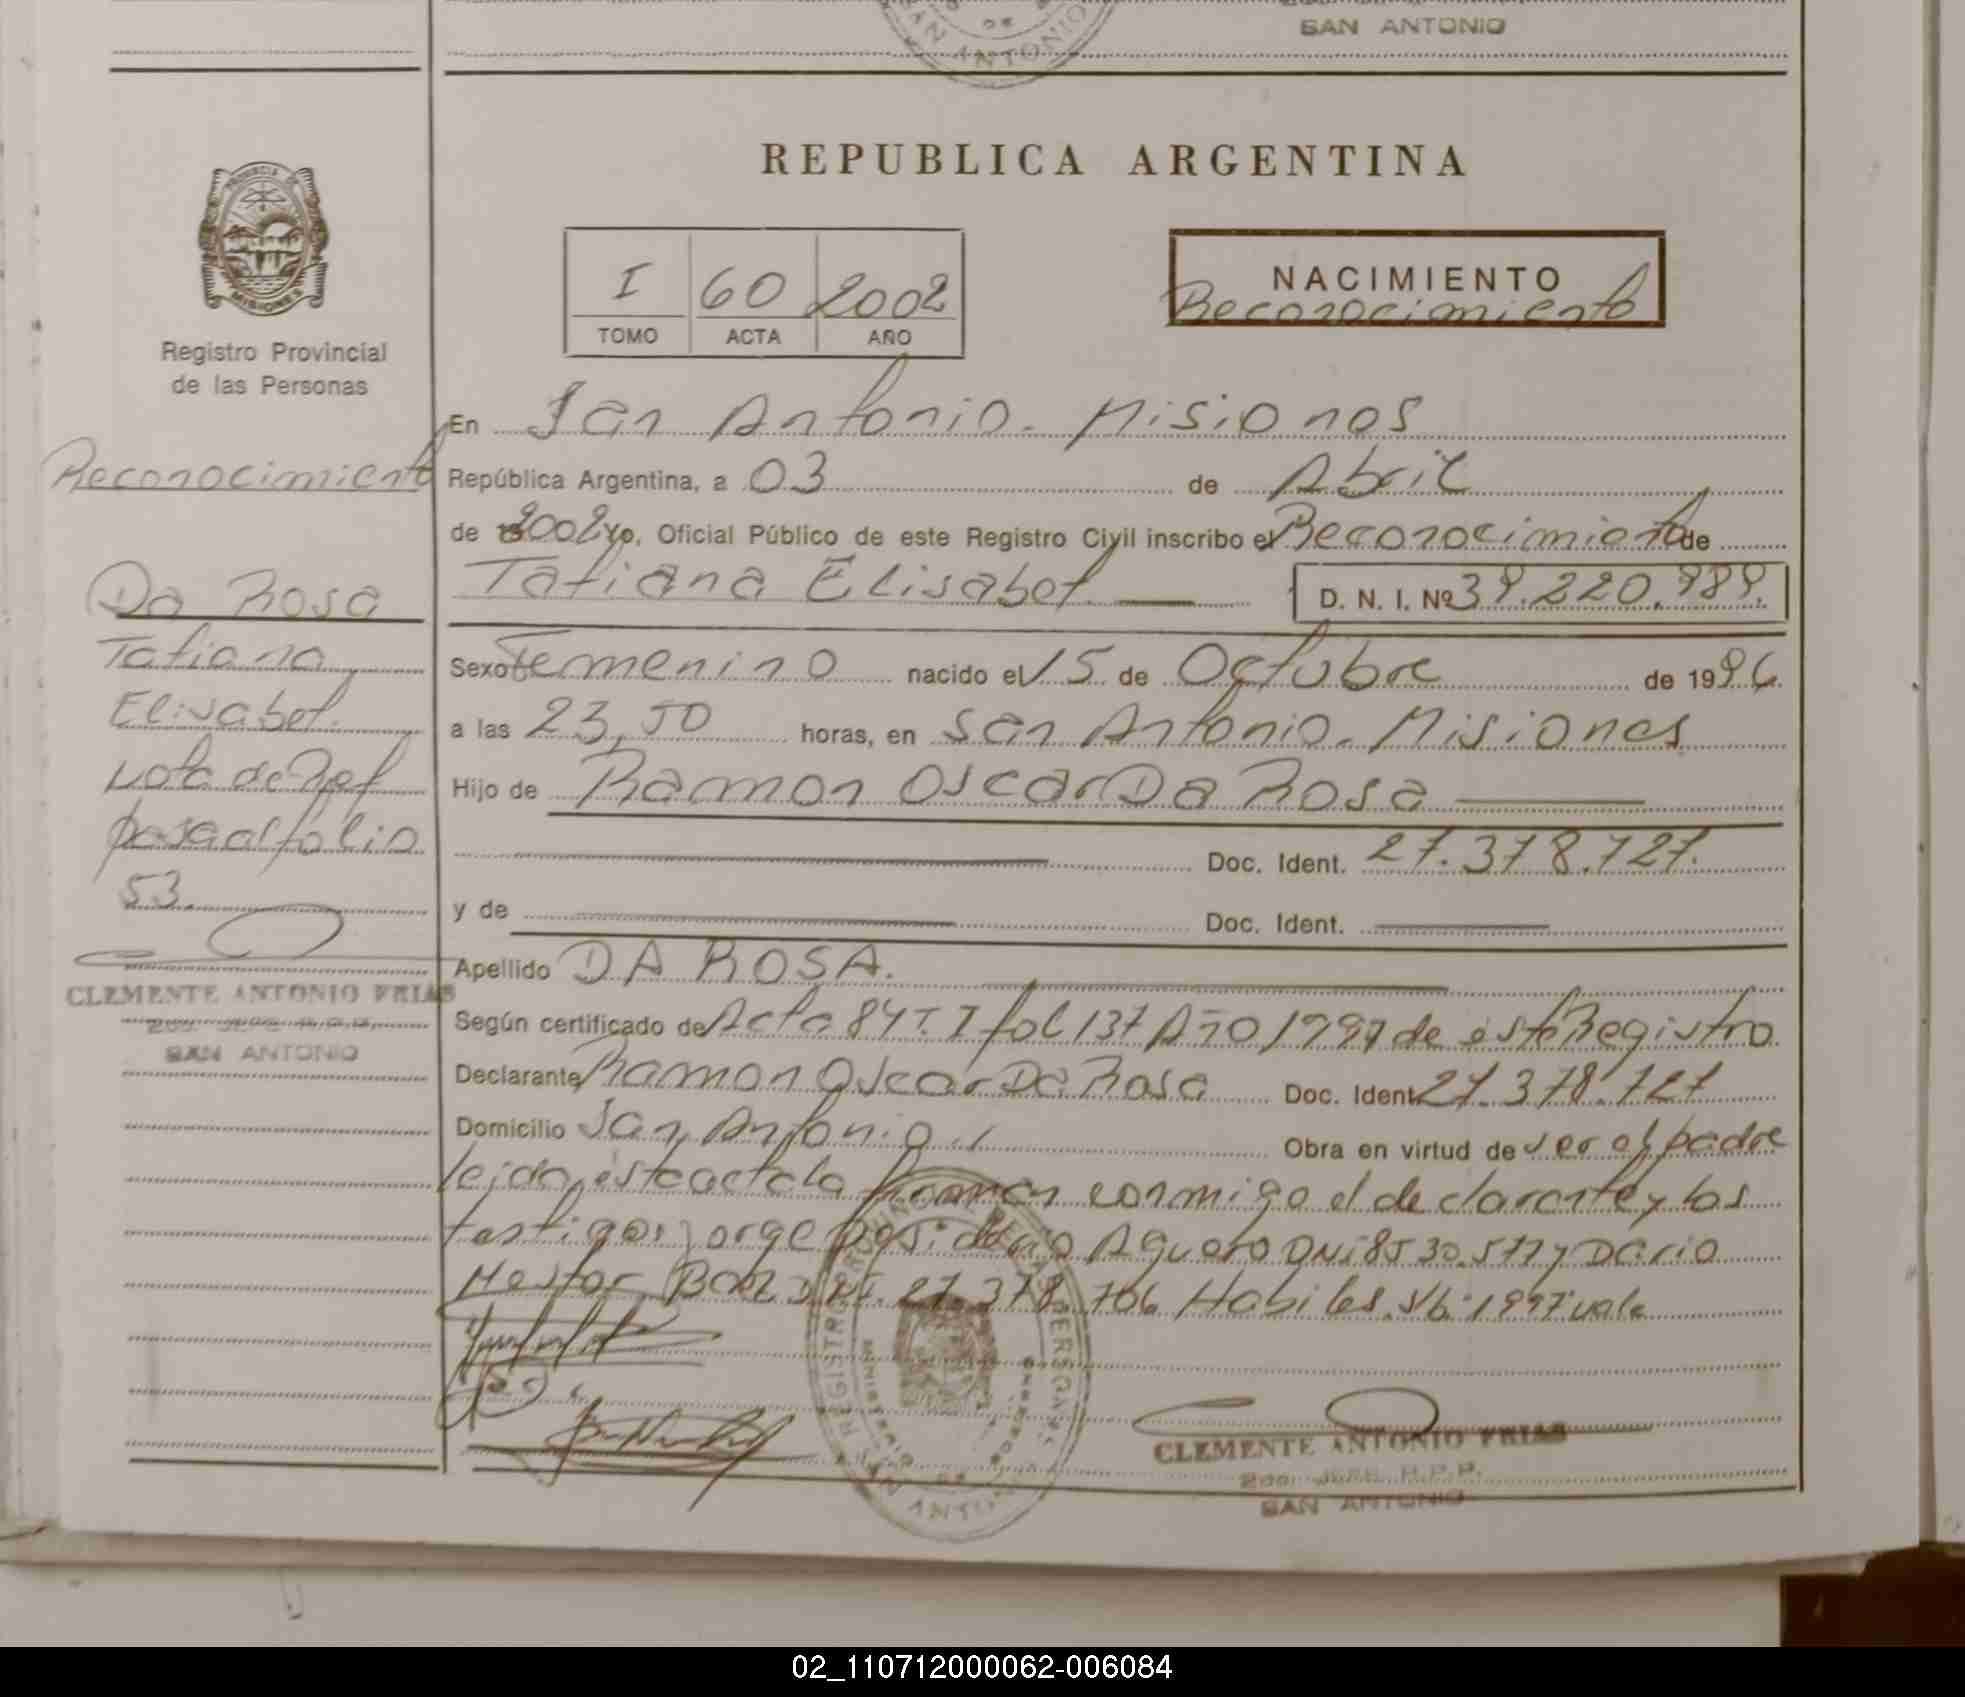 SAN ANTONIO
DE
SAN ANTONIO
REPUBLICA ARGENTINA
PROVINCIA DE
MISIONES
Registro Provincial
de las Personas
I 60 2002
TOMO ACTA AÑO
NACIMIENTO
Reconocimiento
En San Antonio. Misiones
Reconocimiento
República Argentina, a 03 de Abril
de 2002 Yo, Oficial Público de este Registro Civil inscribo el Reconocimiento de
Tatiana Elisabet D. N. I. Nº 39.220.989.
Da Rosa
Tatiana
Elisabet
Nota de Ref
pasa al folio
53.
CLEMENTE ANTONIO FRIAS
SAN ANTONIO
Sexo Femenino nacido el 15 de Octubre de 1996
a las 23,50 horas, en San Antonio. Misiones
Hijo de Ramon Oscar Da Rosa
Doc. Ident. 27.378.727.
y de Doc. Ident.
Apellido DA ROSA.
Según certificado de Acta 84 T. I fol 137 Año 1997 de este Registro
Declarante Ramon Oscar Da Rosa Doc. Ident 27.378.727
Domicilio San Antonio Obra en virtud de ser el padre
leida este acta la firman conmigo el declarante y los
testigos Jorge Aguero DNI 8530.577 y Dario
Nestor 27.378.706 Habiles. s/b: 1997 vale
CLEMENTE ANTONIO FRIAS
2do. JEFE R.P.P.
SAN ANTONIO
02_110712000062-006084